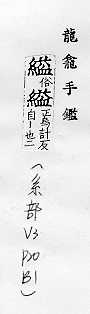 龍龕手鑑
縊俗縊正烏計反
自〡也二
(糸部
V3
P20
B1)